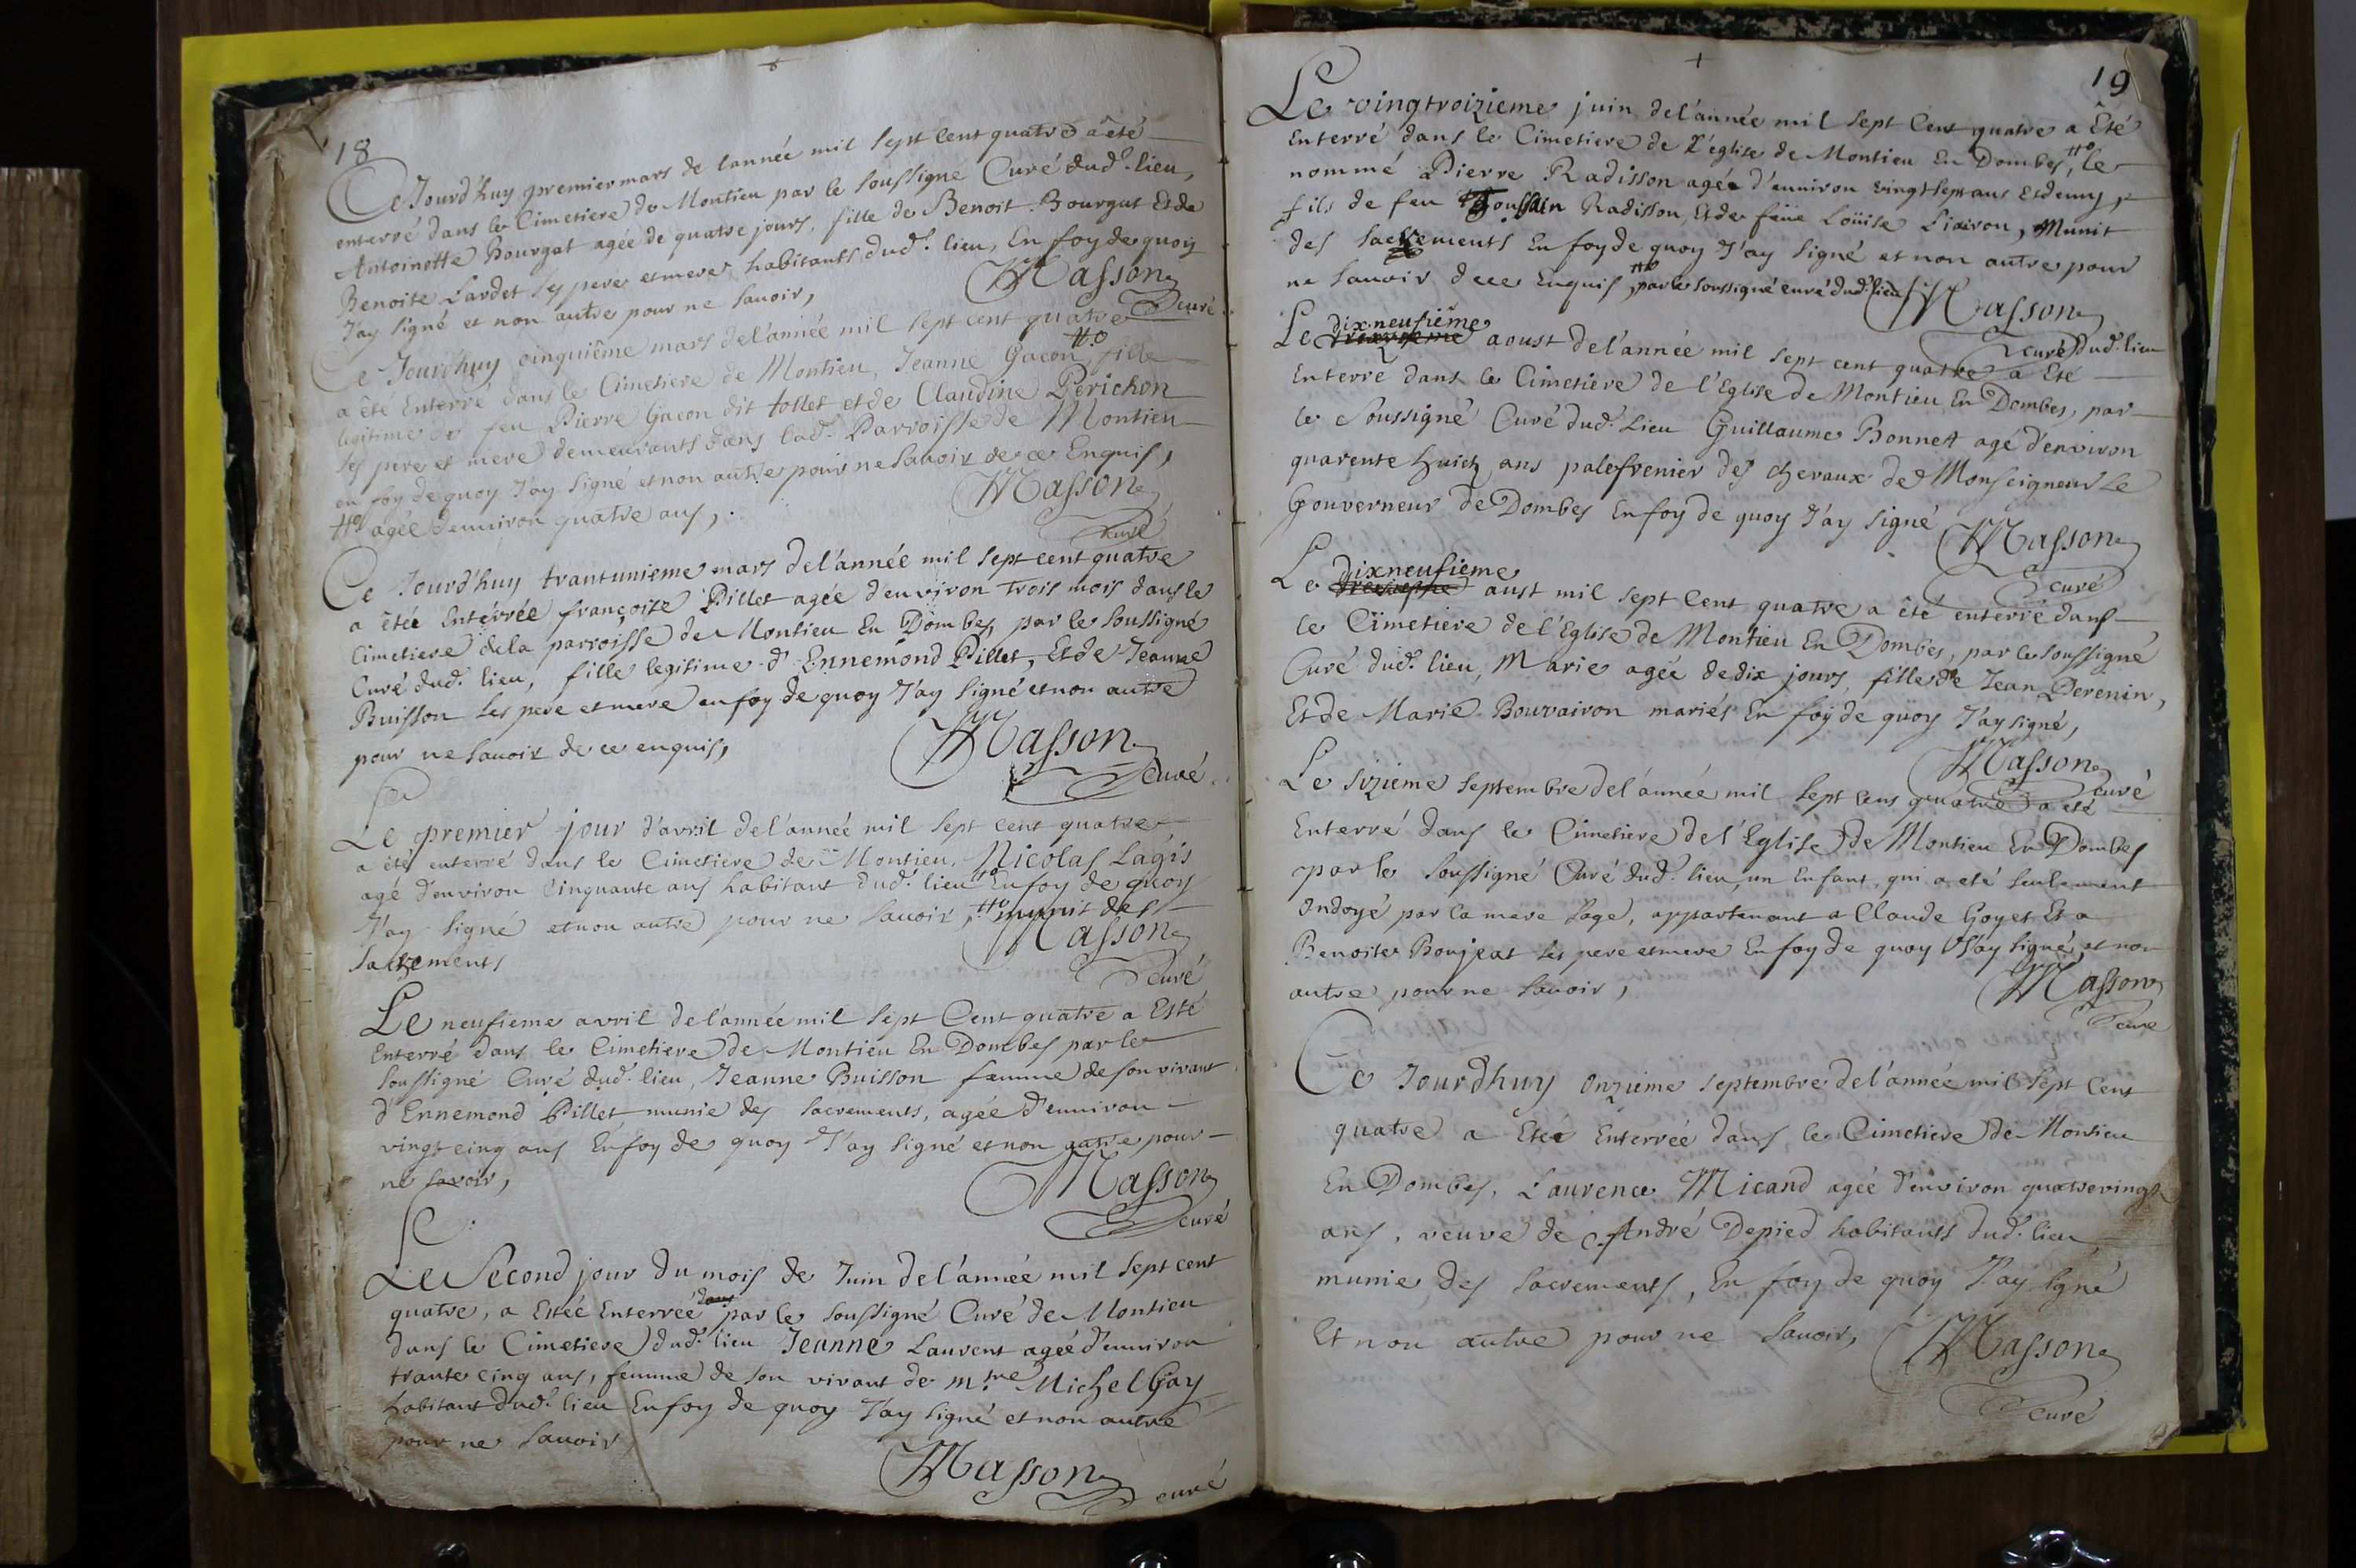 18
Ce Jourd'huy premier mars de lannée mil sept cent quatre a êté
enterré dans le Cimetiere de Montieu par le soussigné Curé dud.t lieu,
Antoinette Bourgat agée de quatre jours, fille de Benoit Bourgat Et de
Benoite Lardet ses pere et mere habitants dud.t lieu, En foy de quoy
J'ay signé et non autre pour ne savoir,
Masson
curé
Ce Jourd'huy cinquiême mars de l'année mil sept cent quatre
a êté Enterré dans le Cimetiere de Montieu, Jeanne Gacon # fille
legitime de feu Pierre Gacon dit tollet et de Claudine Perichon
ses pere et mere demeurants dans lad.t Parroisse de Montieu
en foy de quoy J'ay signé et non autre pour ne savoir de ce Enquis,
# agée d'environ quatre ans,
Masson
curé
Ce Jourd'huy trantunieme mars de l'année mil sept cent quatre
a êtée Enterrée françoise Pillet agée d'environ trois mois dans le
Cimetiere de la parroisse de Montieu En Dombes, par le soussigné
Curé dud.t lieu, fille legitime d'Ennemond Pillet, Et de Jeanne
Buisson ses pere et mere en foy de quoy J'ay signé et non autre
pour ne savoir de ce enquis,
Masson
curé
Le premier jour d'avril de l'année mil sept cent quatre
a été enterré dans le Cimetiere de Montieu, Nicolas Lagis
agé d'environ Cinquante ans habitant dud.t lieu # En foy de quoy
J'ay signé et non autre pour ne savoir, # munit des
sacrements
Masson
curé
Le neufieme avril de l'année mil sept Cent quatre a Esté
Enterré dans le Cimetiere de Montieu En Dombes par le
soussigné Curé dud.t lieu, Jeanne Buisson femme de son vivant
d'Ennemond Pillet munie des sacrements, agée d'environ
vingt cinq ans En foy de quoy J'ay signé et non autre pour
ne savoir,
Masson
curé
Le Second jour du mois de Juin de l'année mil sept cent
quatre, a Estée Enterrée dans par le soussigné Curé de Montieu
dans le Cimetiere dud.t lieu Jeanne Laurent agée d'environ
trante cinq ans, femme de son vivant de m.tre Michel Gay
habitant dud.t lieu En foy de quoy J'ay signé et non autre
pour ne savoir
Masson curé
19
Le vingtroizieme juin de l'année mil sept Cent quatre a Êté
Enterré dans le Cimetiere de l'église de Montieu En Dombes, # le
nommé Pierre Radisson agée d'environ vingt sept ans et demy,
fils de feu Toussain Radisson, Et de feüe Loüise Liairon, Munit
des sacrements En foy de quoy J'ay signé et non autre pour
ne savoir de ce Enquis, # par le soussigné curé dud.t lieu
Masson
curé dud.t lieu
Le dixneufiême aoust de l'année mil sept cent quatre a Eté
Enterré dans le Cimetiere de l'Eglise de Montieu En Dombes, par
le Soussigné Curé dud.t Lieu Guillaume Bonnet agé d'environ
quarente huict ans palefrenier des chevaux de Monseigneur Le
Gouverneur de Dombes En foy de quoy J'ay signé
Masson
curé
Le dixneufieme aust mil sept Cent quatre a êté enterré dans
le Cimetiere de l'Eglise de Montieu En Dombes, par le soussigné
Curé dud.t lieu, Marie agée de dix jours, fille de Jean Derenin,
Et de Marie Bouvairon mariés En foy de quoy J'ay signé,
Masson
curé
Le sizieme septembre de l'année mil sept cens quatre a eté
Enterré dans le Cimetiere de l'Eglise de Montieu En Dombes
par le soussigné Curé dud.t lieu, un Enfant qui a eté seulement
Ondoyé par la mere sage, appartenant a Claude Goyet Et a
Benoite Boujeat ses pere et mere En foy de quoy J'ay signé et non
autre pour ne savoir,
Masson
curé
Ce Jourdhuy onzieme septembre de l'année mil sept Cens
quatre a Etée Enterrée dans le Cimetiere de Montieu
En Dombes, Laurence Micand agée d'environ quatrevingt
ans, veuve de André Depied habitants dud.t lieu
munie des sacrements, En foy de quoy J'ay signé
Et non autre pour ne savoir,
Masson
curé